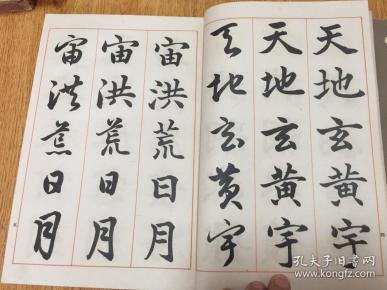 天地玄黄宇
天地玄黄宇
天地玄黄宇
宙洪荒日月
宙洪荒日月
宙洪荒日月
孔夫子旧书网
www.kongfz.com